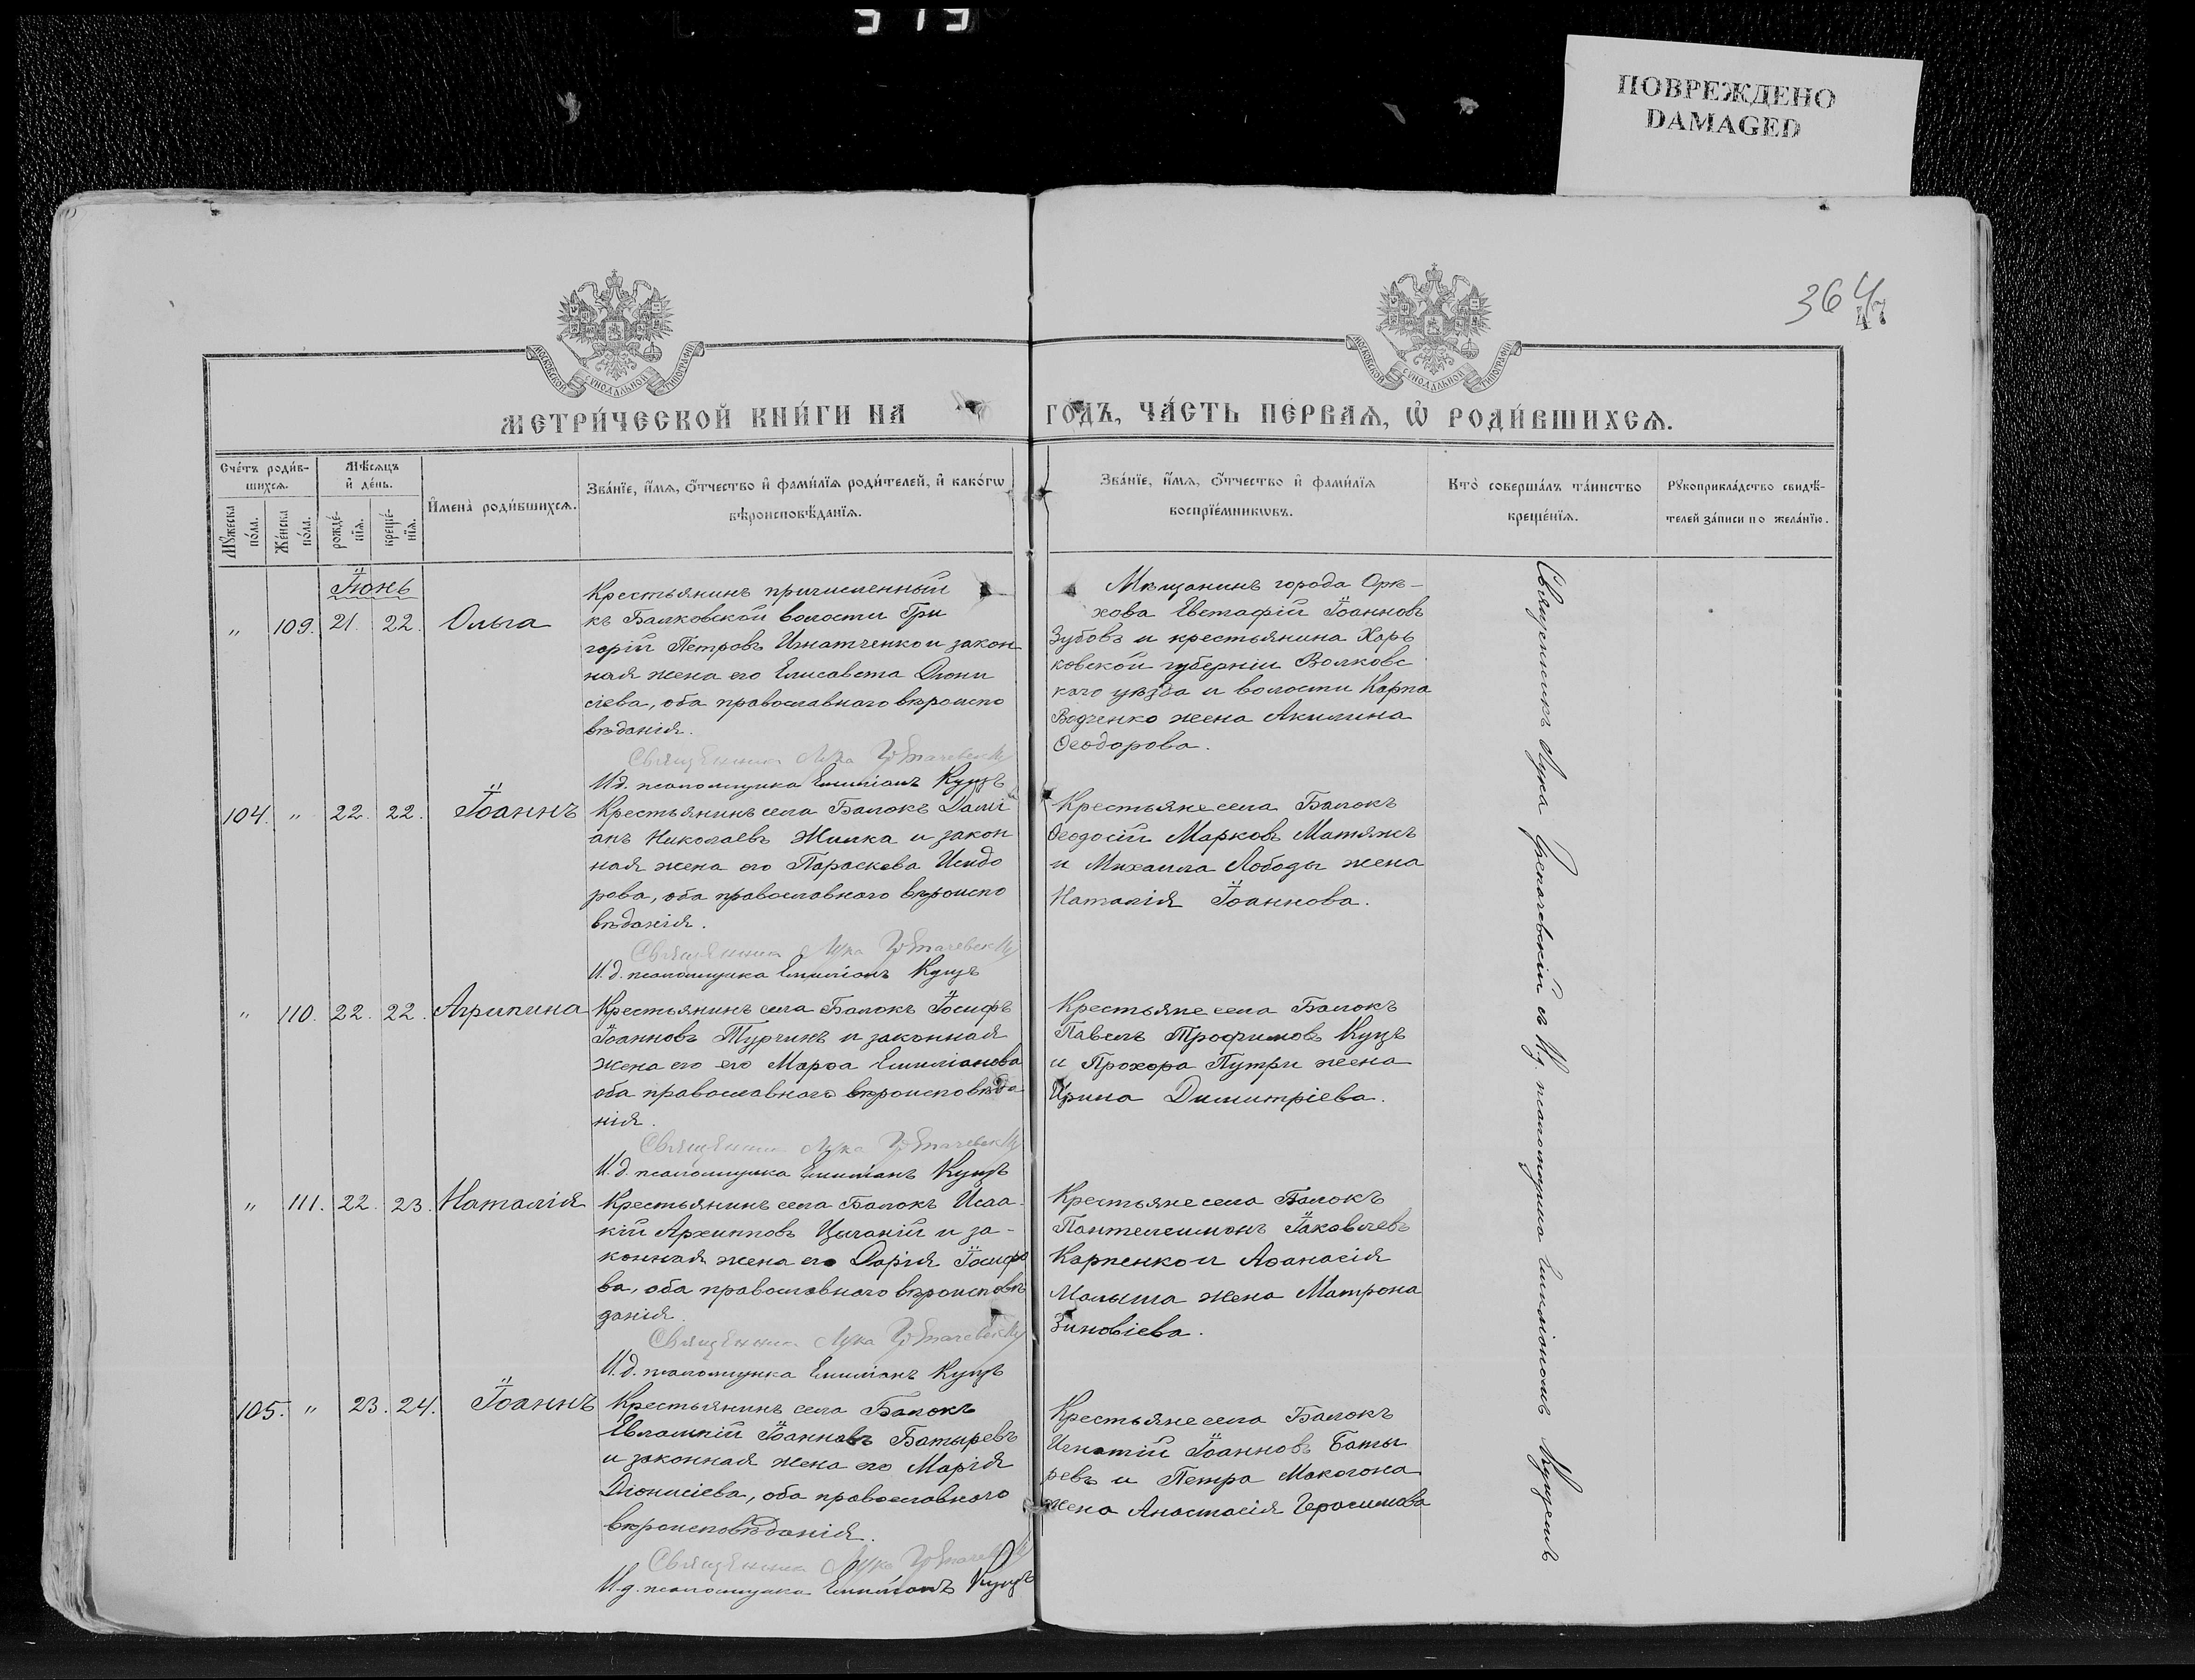 ПОВРЕЖДЕНО
DAMAGED
364
47
МОСКОВСКОЙ СУНОДАЛЬНОЙ ТИПОГРАФІИ
МОСКОВСКОЙ СУНОДАЛЬНОЙ ТИПОГРАФІИ
МЕТРИ́ЧЕСКОЙ КНИ́ГИ НА
ГОДЪ, ЧА́СТЬ ПЕ́РВАѦ, Ѡ҆ РОДИ́ВШИХСѦ.
Сче́тъ роди́в-
шихсѧ.
Мꙋ́жеска по́ла.
Же́нска по́ла.
Мѣ́сѧцъ
и҆ де́нь.
рожде́-
нїѧ.
креще́-
нїѧ.
И҆мена̀ роди́вшихсѧ.
Зва́нїе, и҆́мѧ, ѻ҆́тчество и҆ фами́лїѧ роди́телей, и҆ како́гѡ
вѣроисповѣ́данїѧ.
Зва́нїе, и҆́мѧ, ѻ҆́тчество и҆ фами́лїѧ
воспрїе́мникѡвъ.
Кто̀ соверша́лъ та́инство
креще́нїѧ.
Рꙋкоприкла́дство свидѣ́-
телей за́писи по жела́нїю.
Іюнь
" 109. 21. 22. Ольга
Крестьянинъ причисленный
къ Балковской волости Гри
горій Петровъ Игнатченко и закон
ная жена его Елисавета Діони
сіева, оба православнаго вѣроиспо
вѣданія.
Священникъ Лука
И.д. псаломщика Емиліанъ Куцъ
Мѣщанинъ города Орѣ-
хова Евстафій Іоанновъ
Зубовъ и крестьянина Харь
ковской губерніи Волковс
каго уѣзда и волости Карпа
Водченко жена Акилина
Ѳеодорова.
104. " 22. 22. Іоаннъ
Крестьянинъ села Балокъ Дамі 
анъ Николаевъ Жилка и закон
ная жена его Параскева Исидо
рова, оба православнаго вѣроиспо
вѣданія.
Священникъ Лука
И.д. псаломщика Емиліанъ Куцъ
Крестьяне села Балокъ
Ѳеодосій Марковъ Матяжъ
и Михаила Лободы жена
Наталія Іоаннова.
" 110. 22. 22. Агрипина
Крестьянинъ села Балокъ Іосифъ
Іоанновъ Турчинъ и законная
жена его его Марѳа Емиліанова
оба православнаго вѣроисповѣда
нія.
Священникъ Лука
И.д. псаломщика Емиліанъ Куцъ
Крестьяне села Балокъ
Павелъ Трофимовъ Куцъ
и Прохора Путри жена
Ирина Димитріева.
" 111. 22. 23. Наталія
Крестьянинъ села Балокъ Исаа
кій Архипповъ Цыганій и за-
конная жена его Дарія Іосифо
ва, оба православнаго вѣроисповѣ
данія.
Священникъ Лука
И.д. псаломщика Емиліанъ Куцъ
Крестьяне села Балокъ
Пантелеимонъ Іаковлевъ
Карпенко и Аѳанасія
Малыша жена Матрона
Зиновіева.
105. " 23. 24. Іоаннъ
Крестьянинъ села Балокъ
Евлампій Іоанновъ Батыревъ
и законная жена его Марія
Діонисіева, оба православнаго
вѣроисповѣданія.
Священникъ Лука
И.д. псаломщика Емиліанъ Куцъ
Крестьяне села Балокъ
Игнатій Іоанновъ Баты
ревъ и Петра Макогона
жена Анастасія Герасимова
Священникъ Лука съ И.д. псаломщика Емиліаномъ Куцемъ